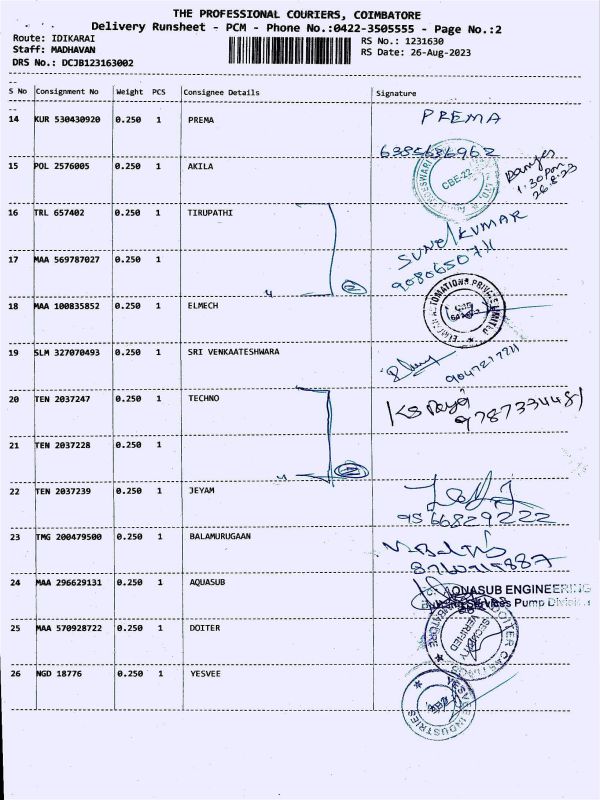 THE PROFESSIONAL COURIERS, COIMBATORE
Delivery Runsheet - PCM - Phone No.:0422-3505555 - Page No.:2
Route: IDIKARAI
RS No.: 1231630
Staff: MADHAVAN
RS Date: 26-Aug-2023
DRS No.: DCJB123163002
S No Consignment No Weight PCS Consignee Details Signature
14 KUR 530430920 0.250 1 PREMA PREMA
15 POL 2576005 0.250 1 AKILA
CBE-22
1.30pm
26.8.23
16 TRL 657402 0.250 1 TIRUPATHI
KUMAR
17 MAA 569787027 0.250 1
9080650711
18 MAA 100835852 0.250 1 ELMECH
AUTOMATIONS PRIVATE LIMITED
19 SLM 327070493 0.250 1 SRI VENKAATESHWARA
9047217711
20 TEN 2037247 0.250 1 TECHNO
21 TEN 2037228 0.250 1
22 TEN 2037239 0.250 1 JEYAM
9566829222
23 TMG 200479500 0.250 1 BALAMURUGAAN
24 MAA 296629131 0.250 1 AQUASUB
AQUASUB ENGINEERING
Services Pump Division
25 MAA 570928722 0.250 1 DOITER
DOITER CASTINGS
SECURITY
VERIFIED
26 NGD 18776 0.250 1 YESVEE
YESVEE INDUSTRIES